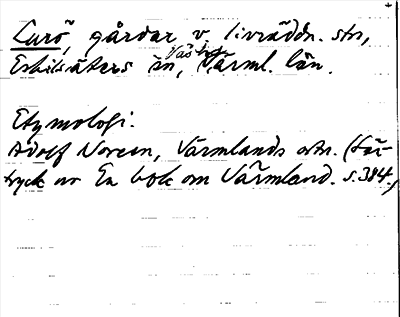 Lurö, gårdar v. livräddn. stn,
Eskilsäters sn, Värml. län.
Etymologi.
Adolf Noreen, Värmlands ortn. (Sär-
tryck av En bok om Värmland. s. 384,